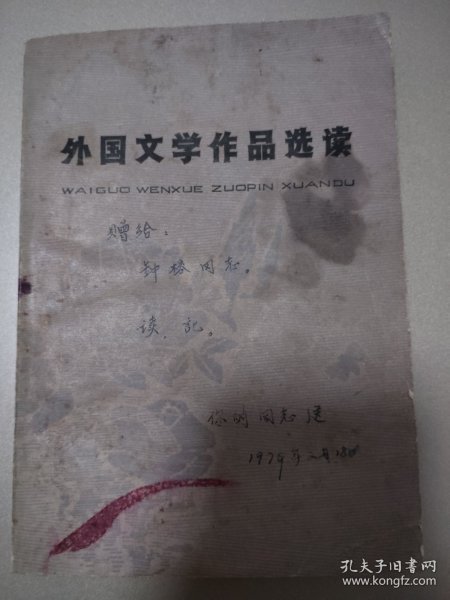 外国文学作品选读
WAIGUO WENXUE ZUOPIN XUANDU
赠给：
钟 同志。
读 记。
同志送
1979年二月18日
孔夫子旧书网
www.kongfz.com